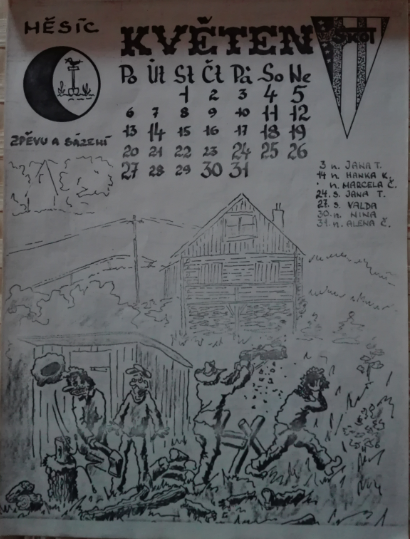 MĚSÍC
KVĚTEN
Po Út St Čt Pá So Ne
1 2 3 4 5
6 7 8 9 10 11 12
13 14 15 16 17 18 19
20 21 22 23 24 25 26
27 28 29 30 31
ZPĚVU A SÁZENÍ
3 n. JANA T.
14 n. HANKA K.
n. MARCELA Č.
24. s. JANA T.
27. s. VALDA
30. n. NINA
31. n. ALENA Č.